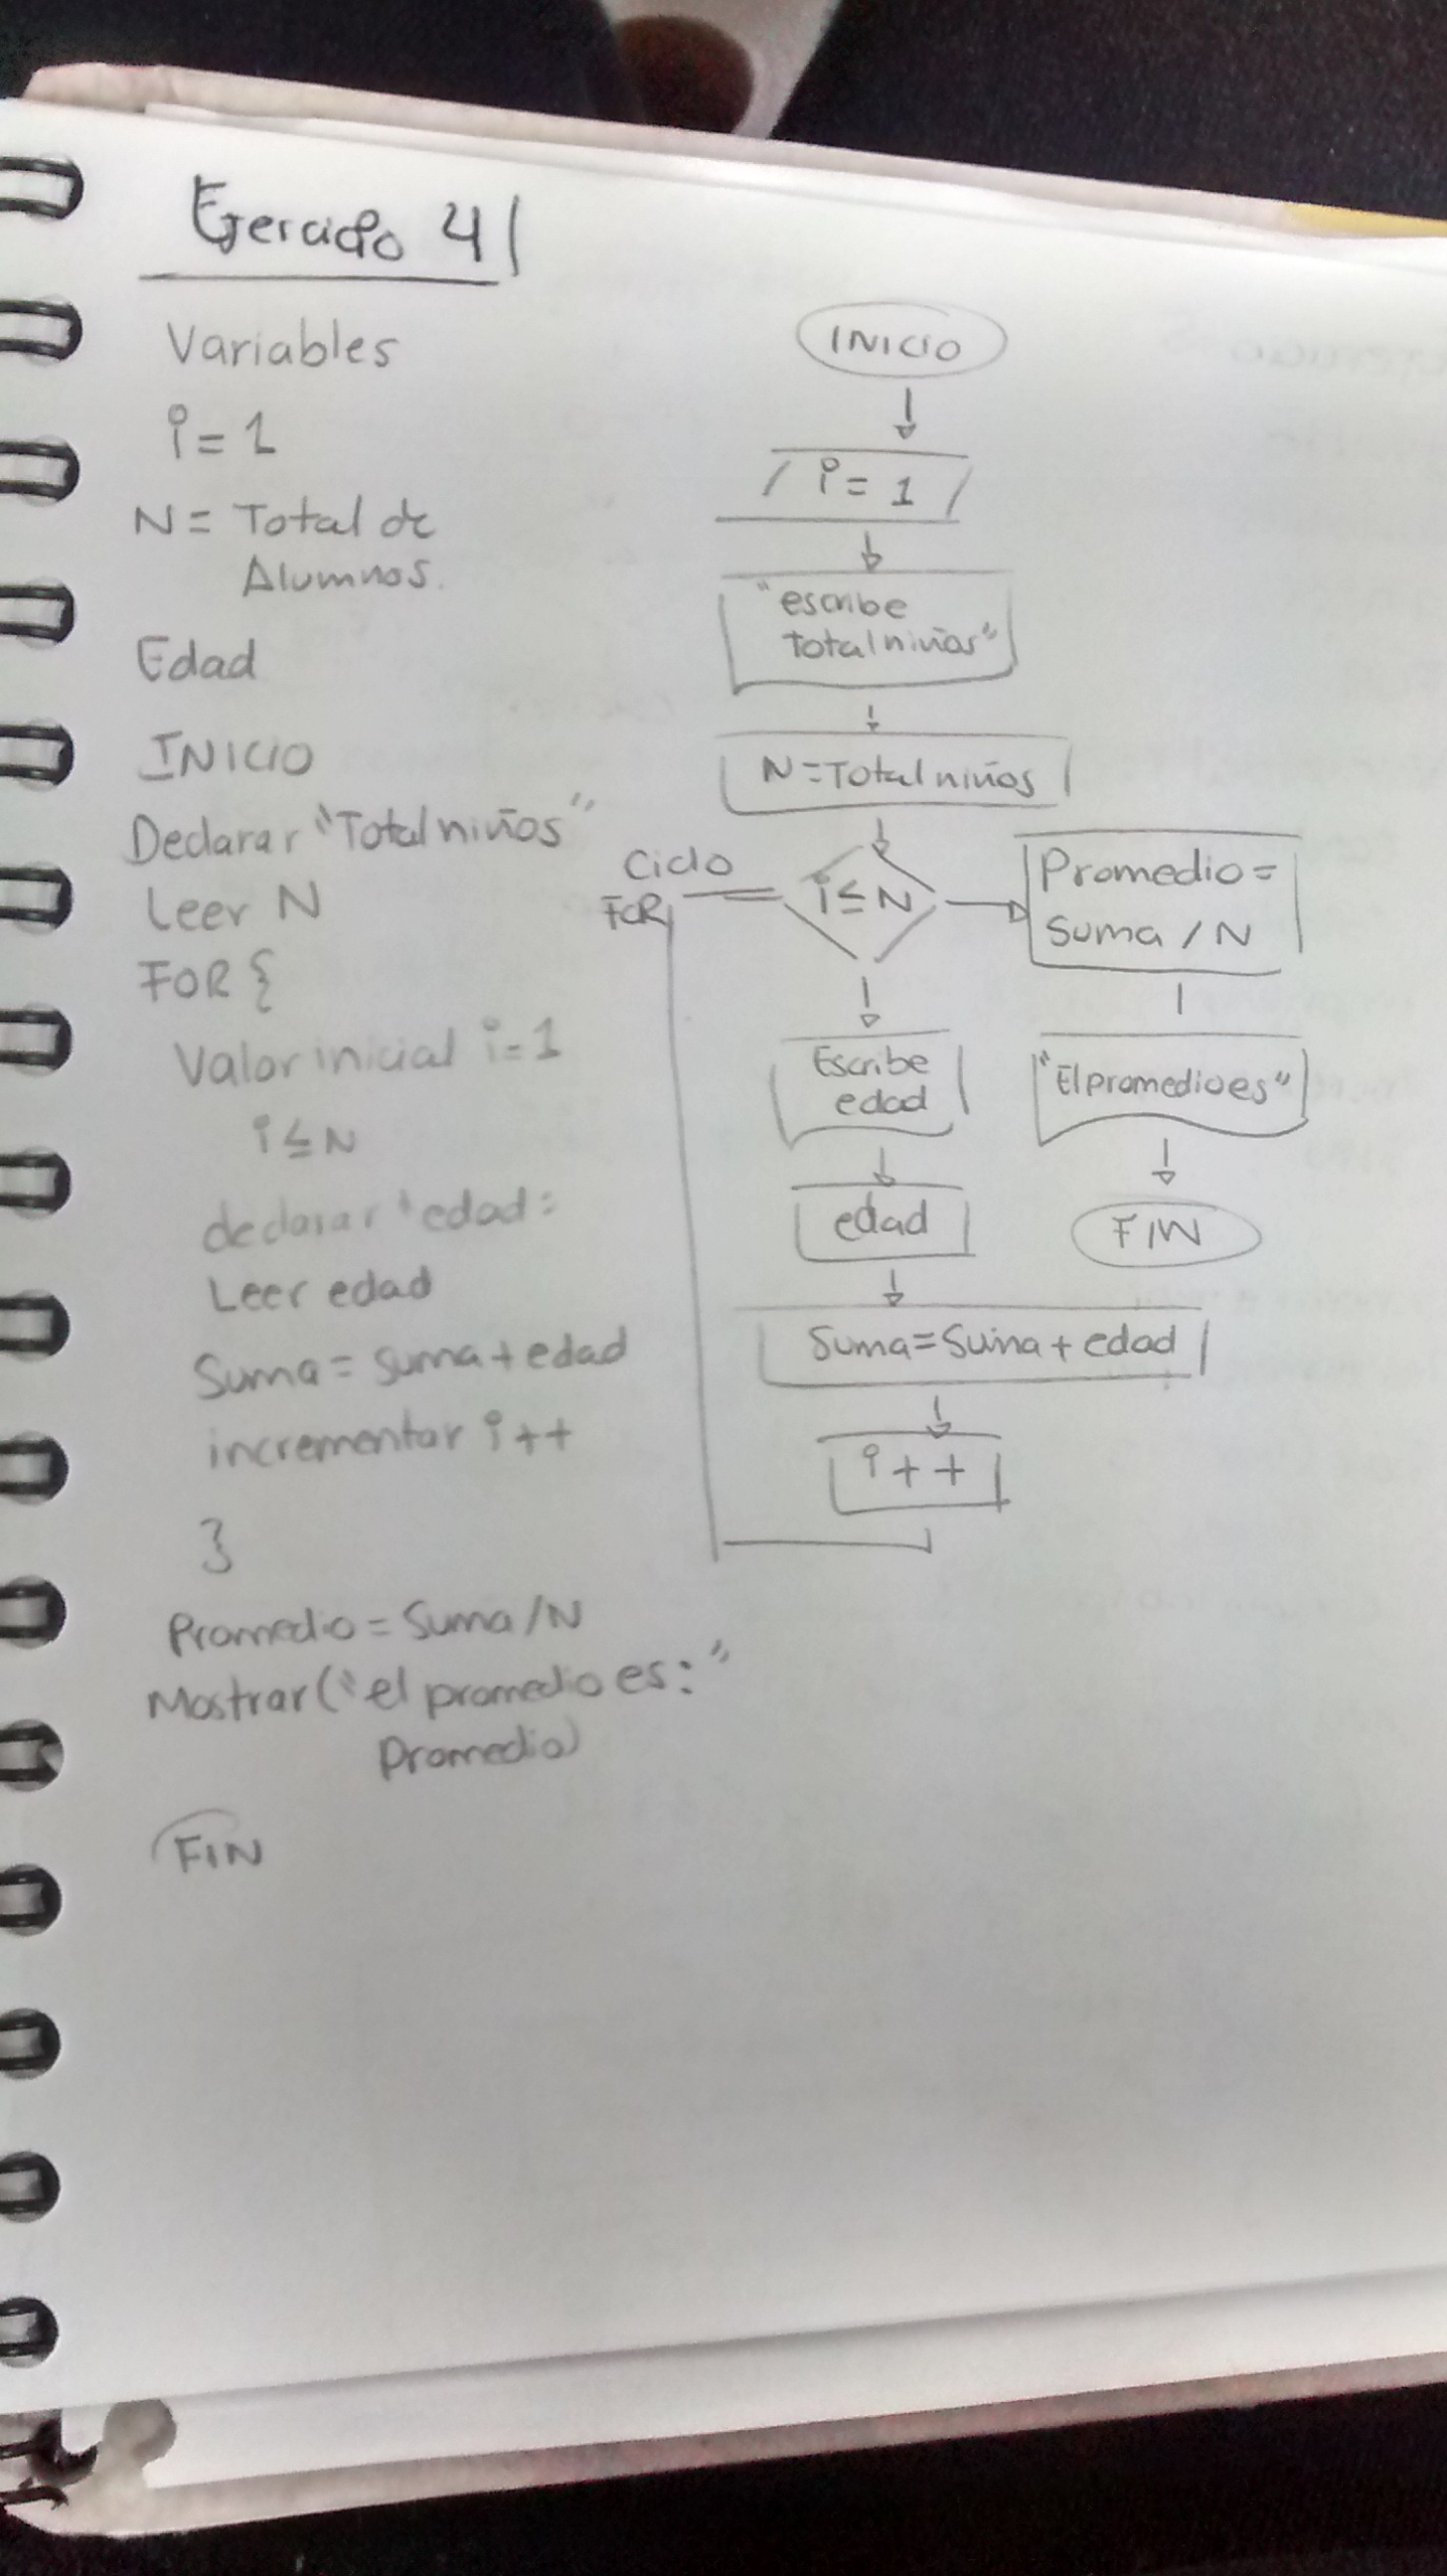 Ejercicio 4
Variables
i = 1
N = Total de
Alumnos.
Edad
INICIO
Declarar "Total niños"
Leer N
FOR {
Valor inicial i = 1
i ≤ N
declarar "edad:
Leer edad
Suma = suma + edad
incrementar i++
}
Promedio = Suma / N
Mostrar ("el promedio es:"
Promedio)
FIN
INICIO
i = 1
"escribe
Total niños"
N = Total niños
Ciclo
FOR
i ≤ N
Promedio =
Suma / N
Escribe
edad
"El promedio es"
edad
FIN
Suma = Suma + edad
i++